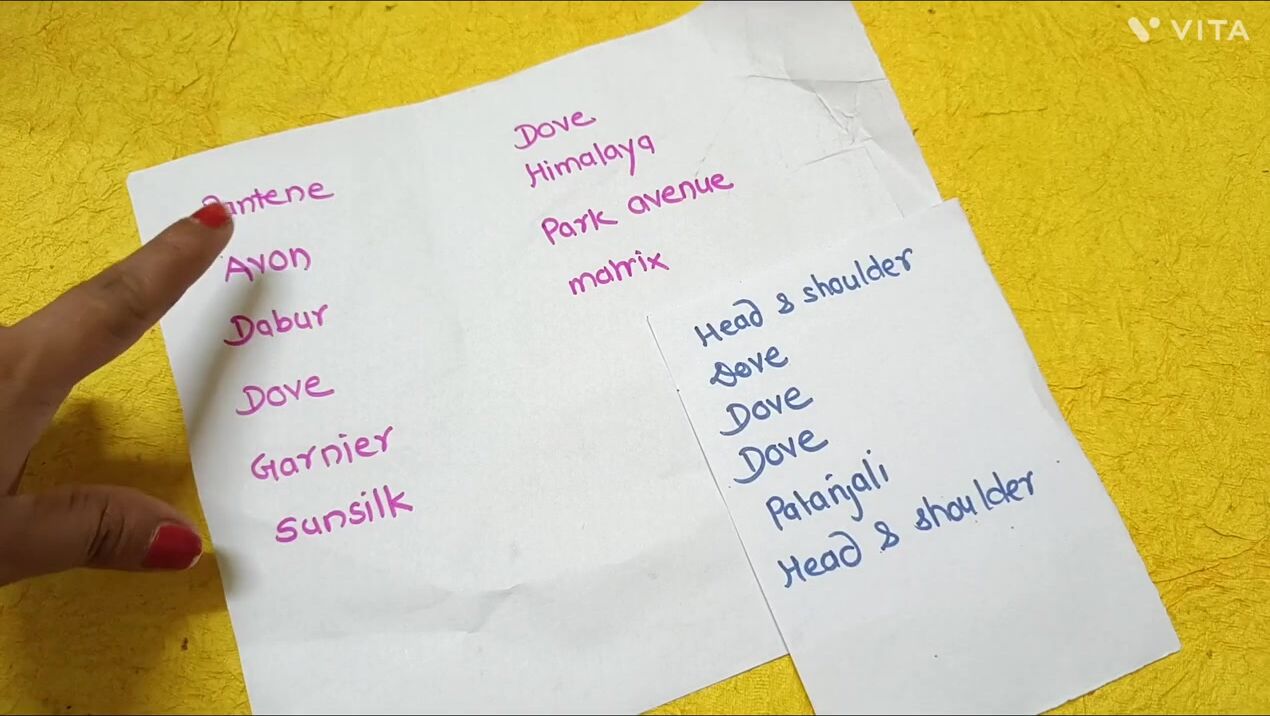 VITA
Pantene
Avon
Dabur
Dove
Garnier
Sunsilk
Dove
Himalaya
Park avenue
matrix
Head & shoulder
Dove
Dove
Dove
Patanjali
Head & shoulder